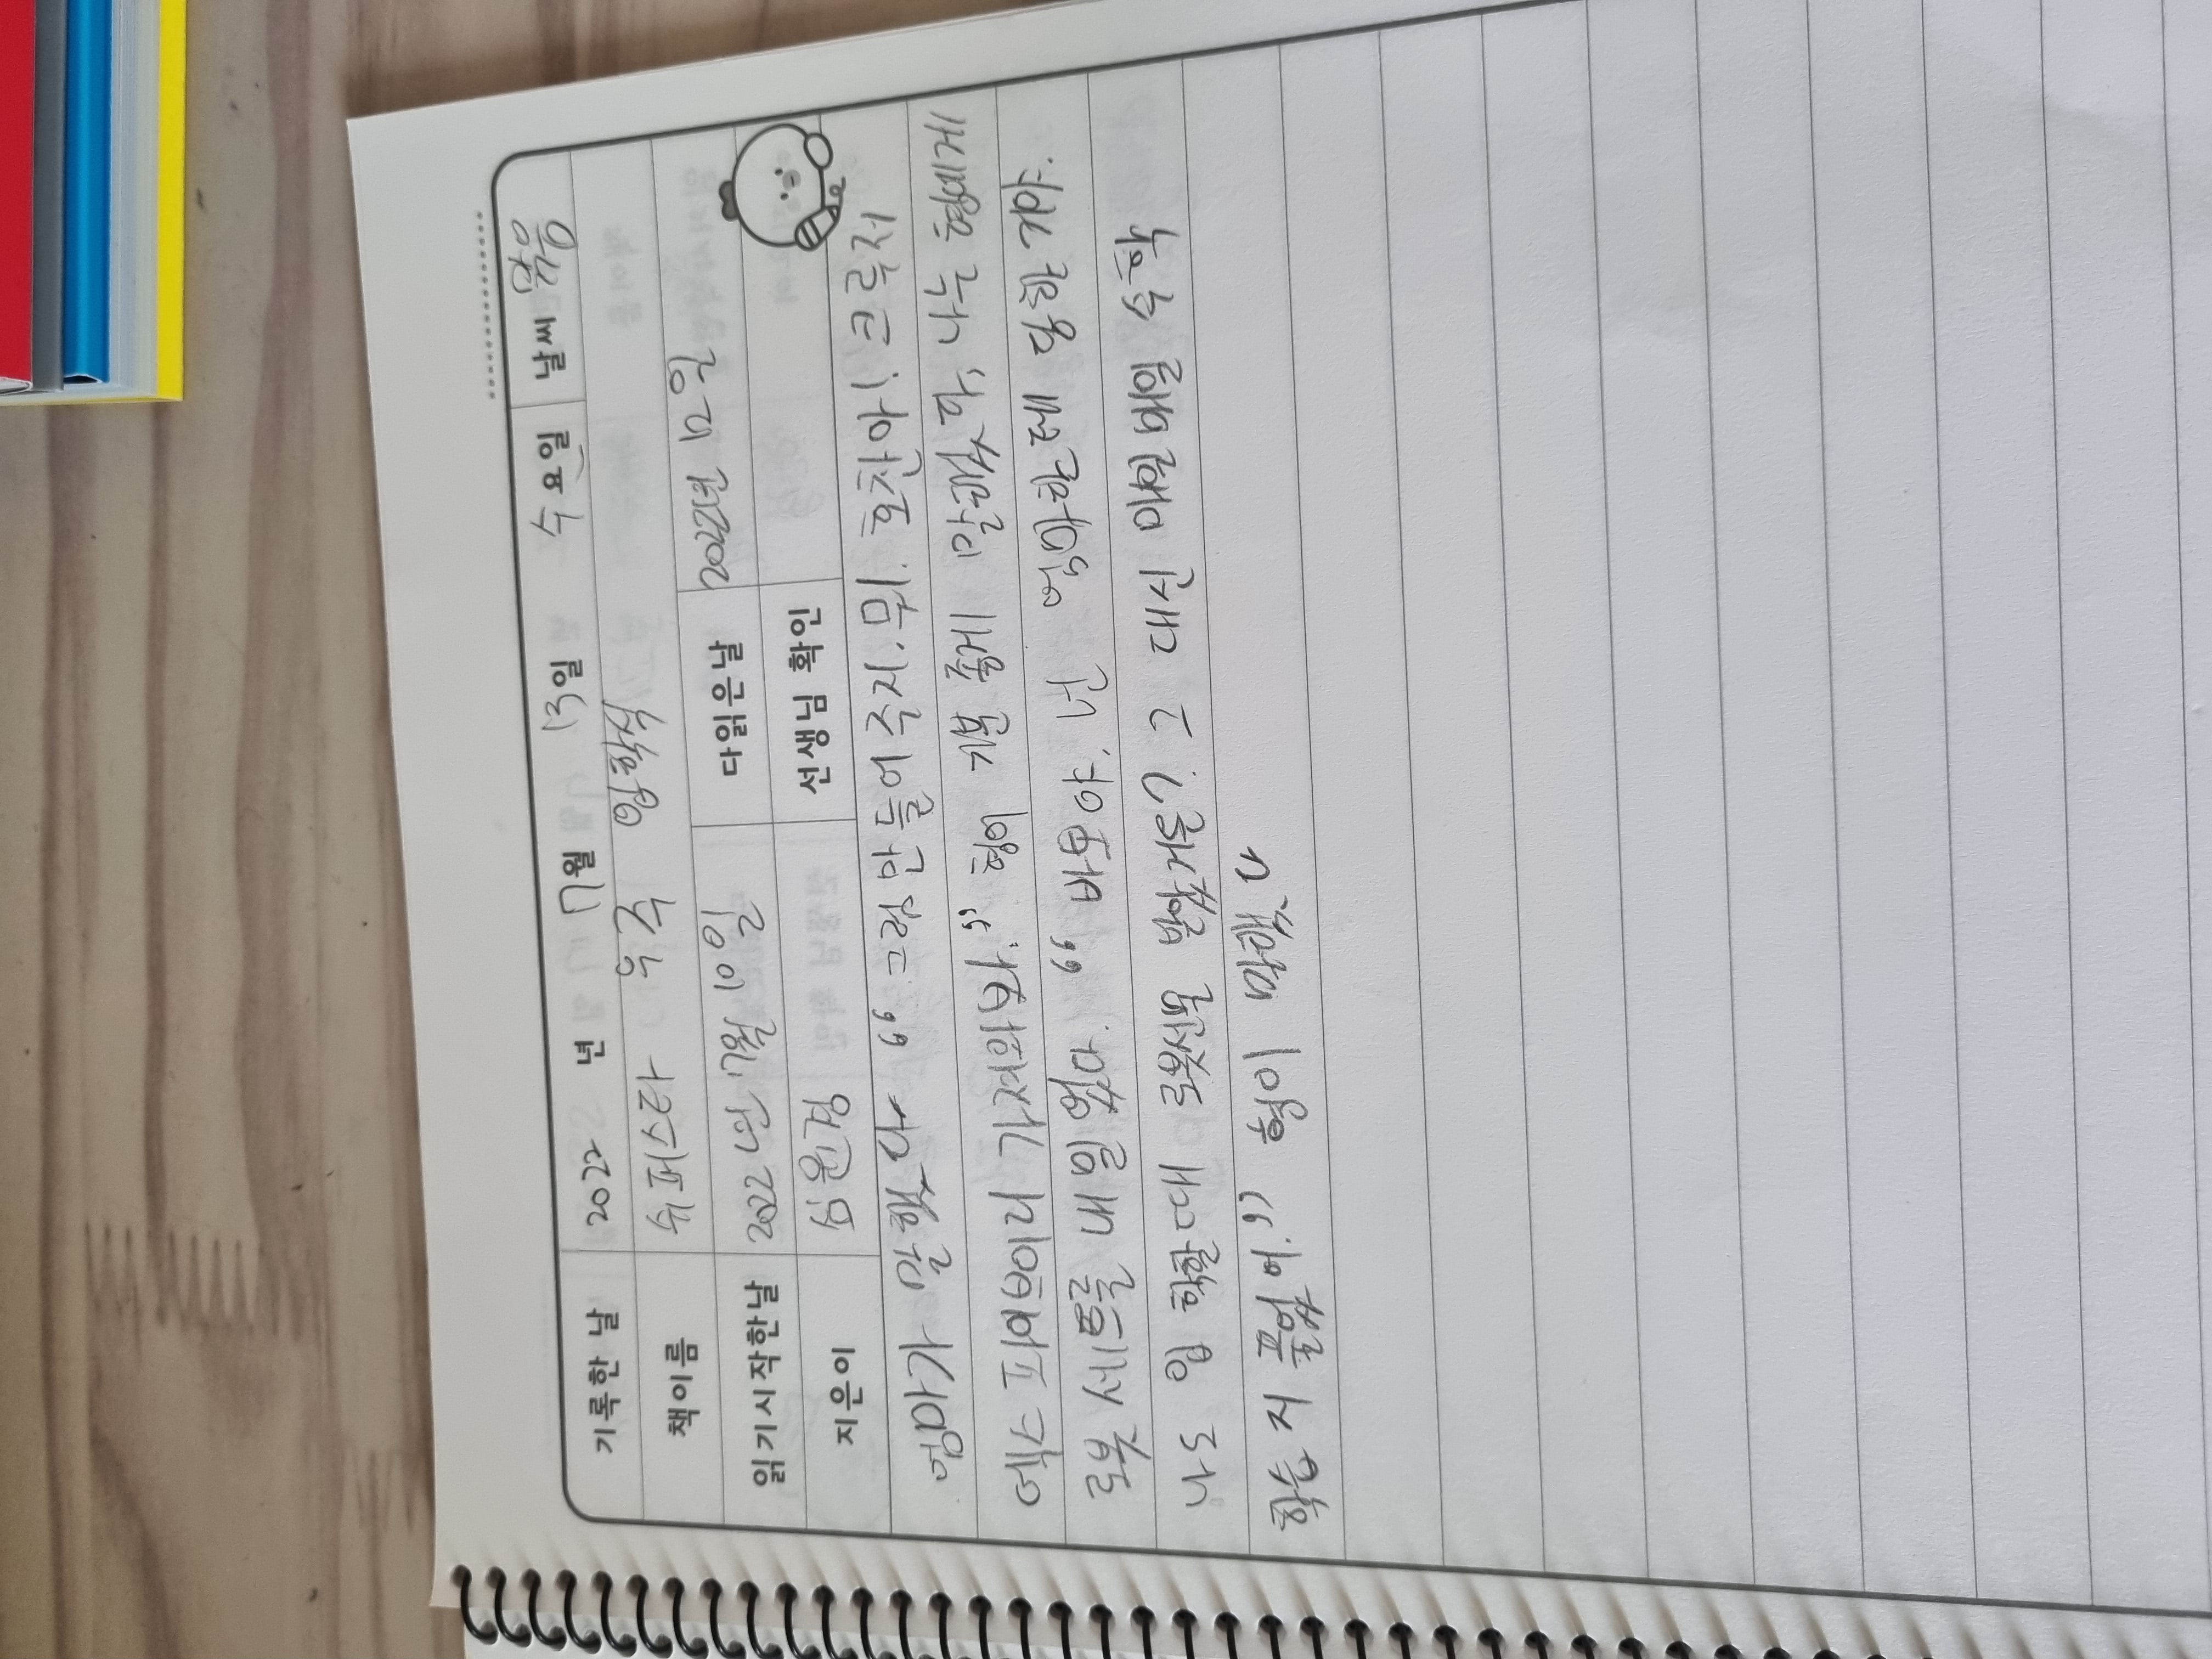 기록한 날 2022 년 7월 13일 수요일 날씨
책이름 슈퍼스타 우주 입학식
읽기시작한날 2022년 7월 10일 다읽은날 2022년 12일
지은이 심윤경 선생님 확인
엄마가 말했다 “ 그럼 만들어 주지. 뭐. 호찬아! 크루저
엑스 파이브이리 가져와봐.” 형이 기분 좋게 말했다, 나는 형에게
로봇 세트를 내밀었다. “ 바보야, 넌 엄마한테 당한거야.
나도 입학할때 로봇선물 받았거든? 그 대신 매일매일 수학
학습지 풀었어.” 형이 말했다